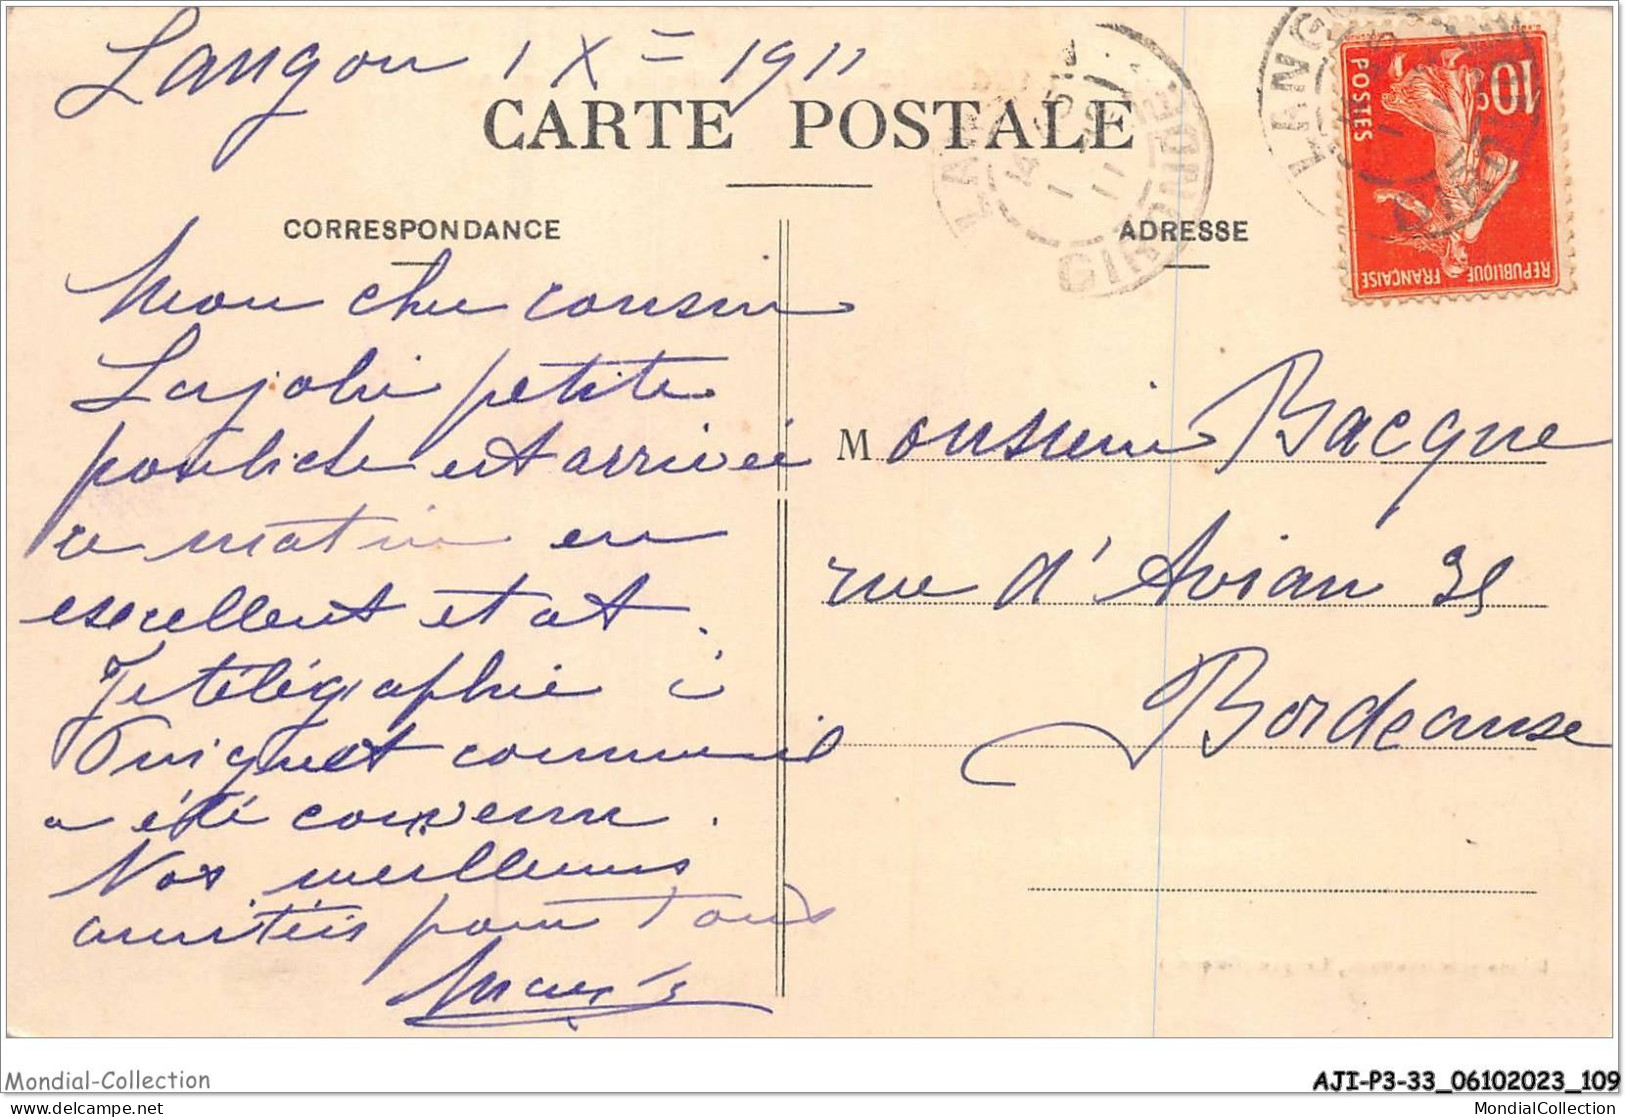 Langon 1 X = 1911
CARTE POSTALE
LANGON
GIRONDE
LANGON
GIRONDE
10c
POSTES
REPUBLIQUE FRANÇAISE
CORRESPONDANCE
Mon cher cousin
La jolie petite
pouliche est arrivée
ce matin en
excellent état.
Je télégraphie à
Puignet comme il
a été convenu.
Nos meilleures
amitiés pour tous
ADRESSE
Monsieur Bacque
rue d'Avian 35
Bordeause
Mondial-Collection
AJI-P3-33_06102023_109
delcampe.net
MondialCollection